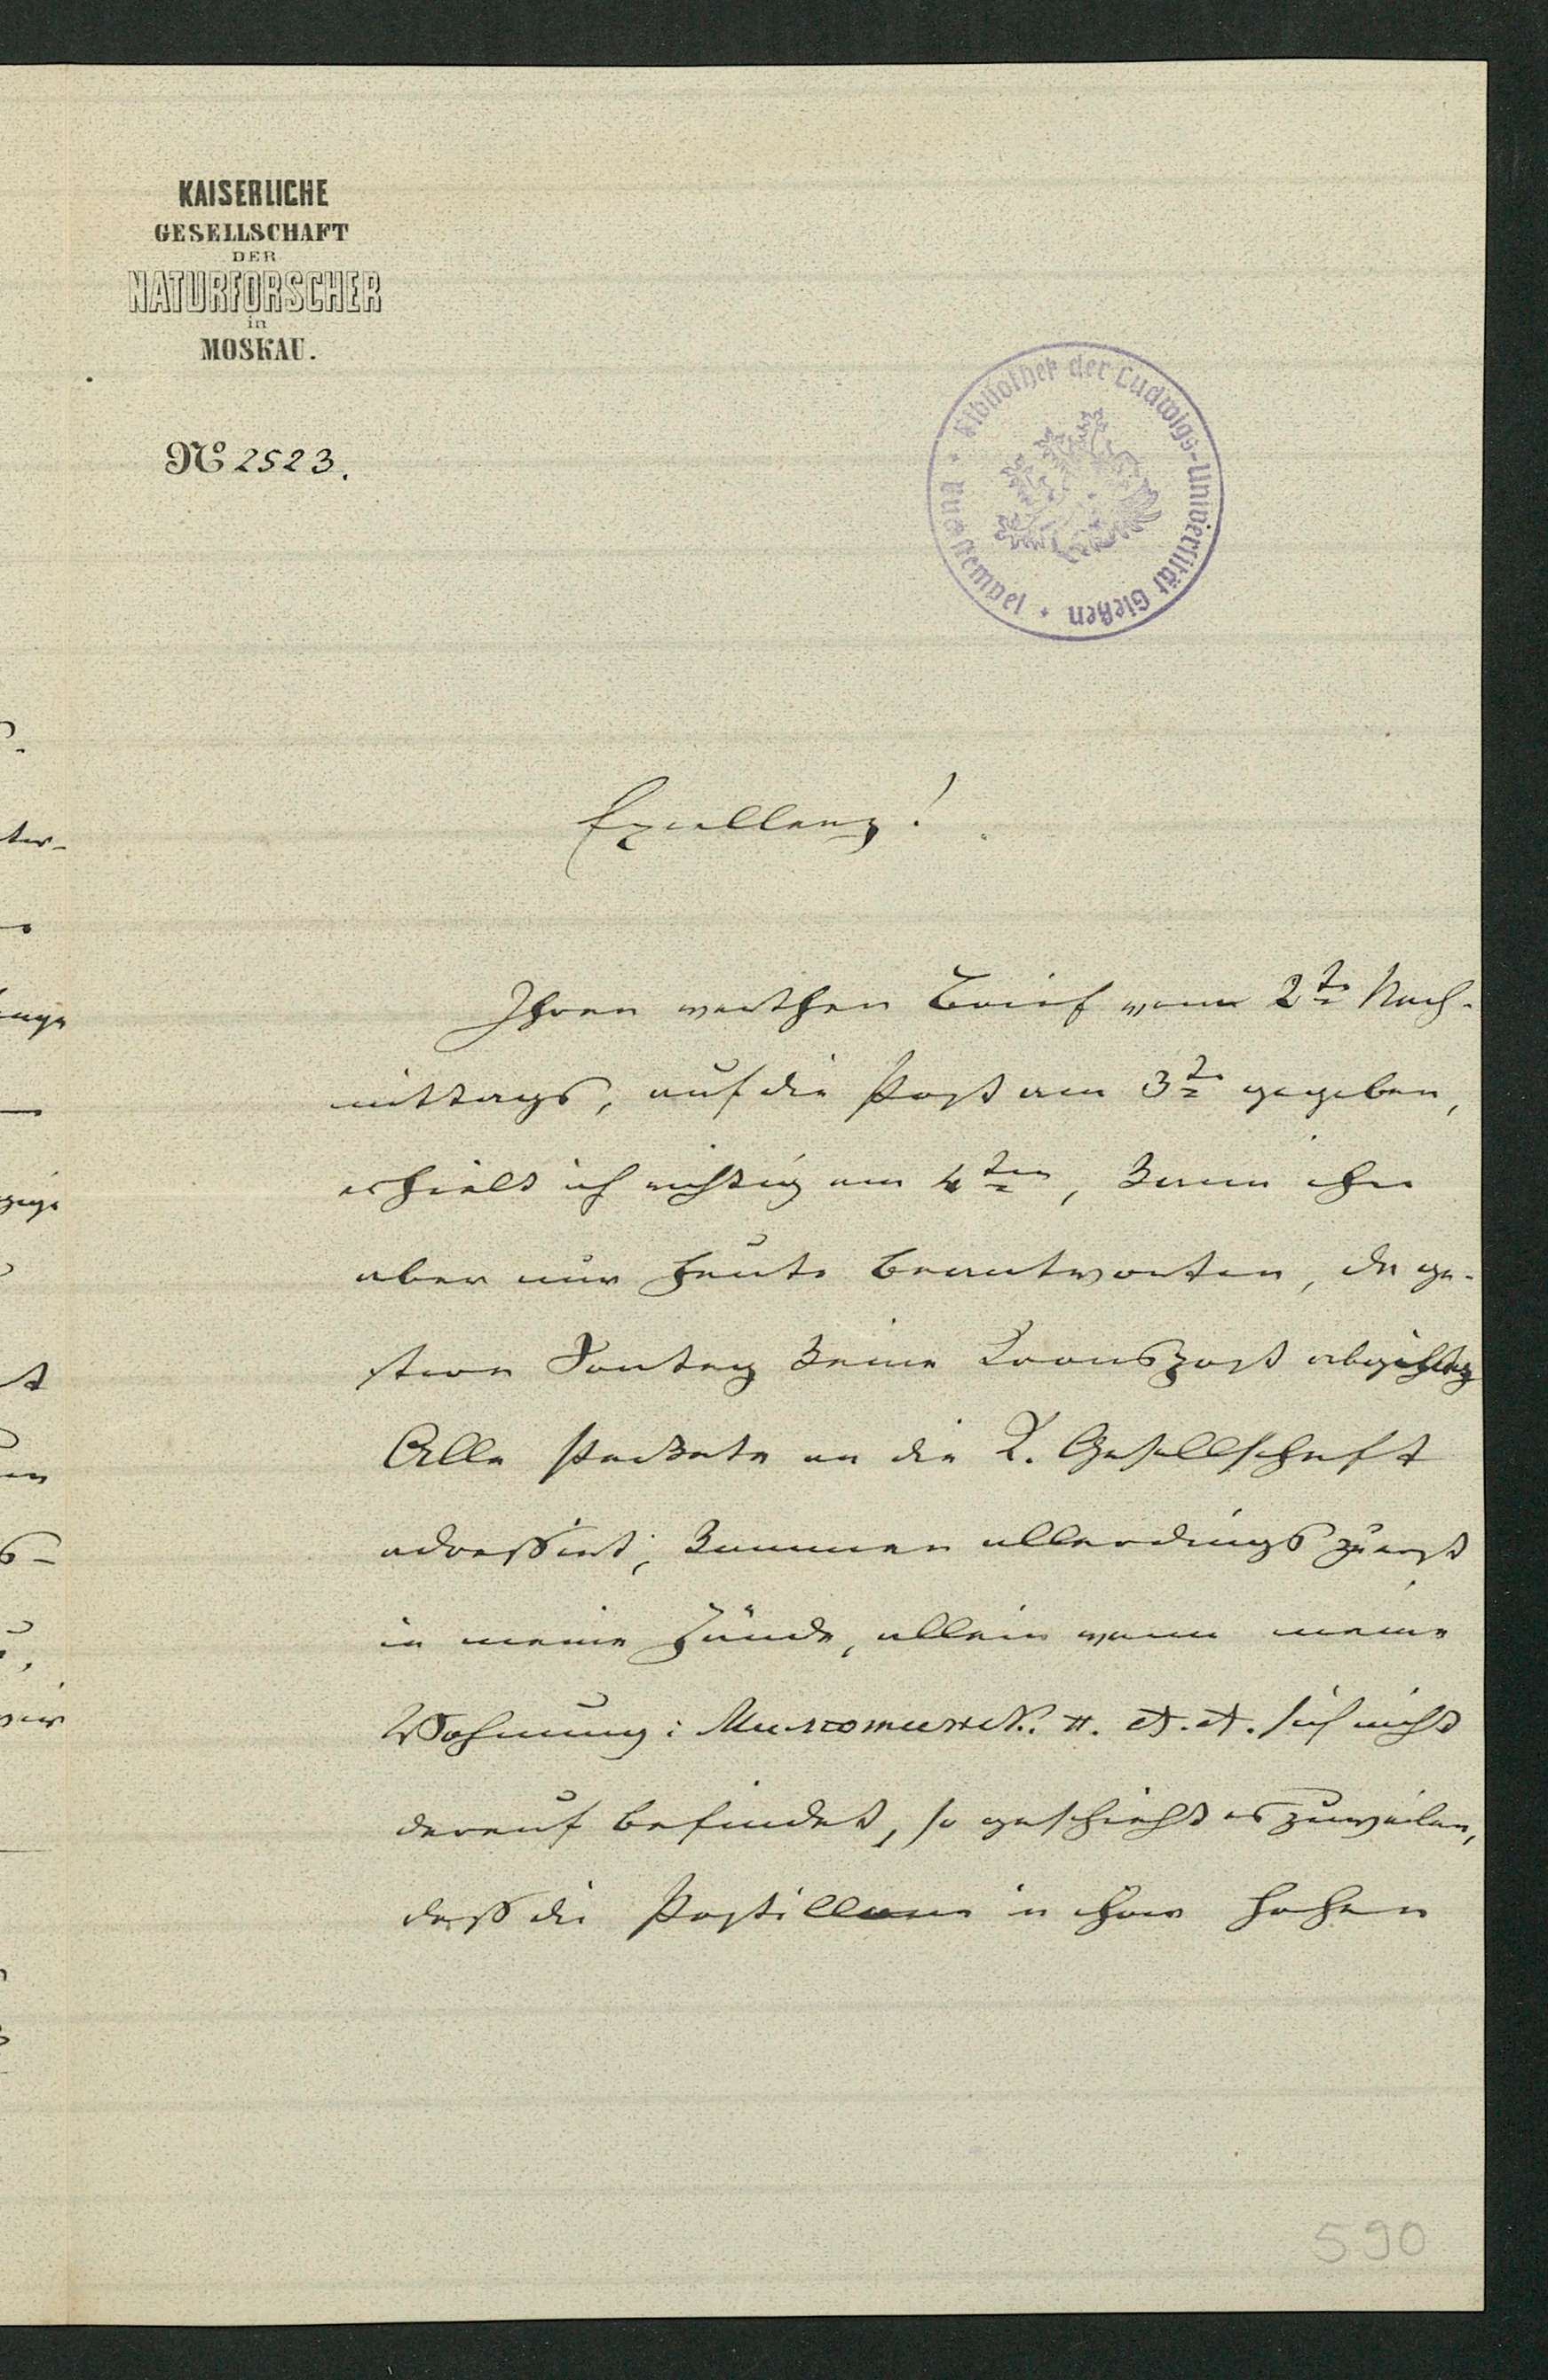 KAISERLICHE
GESELLSCHAFT
DER
NATURFORSCHER
in
MOSKAU.
№ 2523.
Bibliothek der Ludwigs-Universität Gießen
Excellenz!
Ihren werthen Brief vom 2ten Nach-
mittags, auf die Post am 3ten gegeben,
erhielt ich richtig am 4ten, kann ihn
aber nur heute beantworten, da ge-
stern Sontag keine Kronspost
Alle Packete an die K. Gesellschaft
adressirt, kommen allerdings zuerst
in meine Hände, allein wenn meine
Wohnung: sich nicht
darauf befindet, so geschieht es zuweilen,
dass die Postillone in ihrer hohen
590